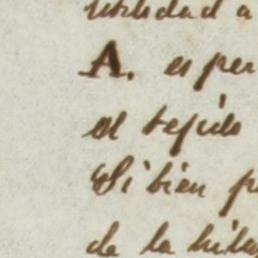 utilidad a
A. es per
el tejido
Si bien p
de la hila